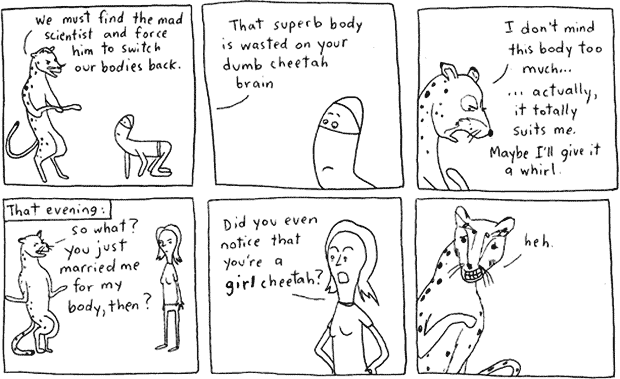 We must find the mad
scientist and force
him to switch
our bodies back.
That superb body
is wasted on your
dumb cheetah
brain
I don't mind
this body too
much...
... actually,
it totally
suits me.
Maybe I'll give it
a whirl.
That evening:
so what?
you just
married me
for my
body, then?
Did you even
notice that
you're a
girl cheetah?
heh.